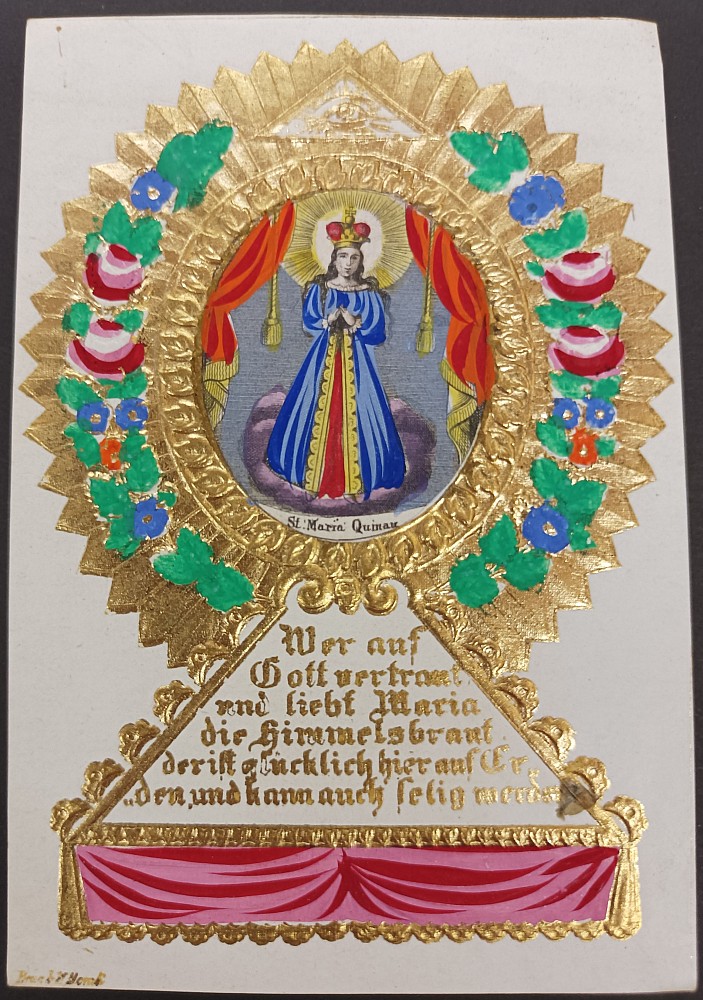 St. Maria Quinau
Wer auf
Gott vertraut
und liebt Maria
die Himmelsbraut.
der ist glücklich hier auf Er
„den, und kann auch selig werden